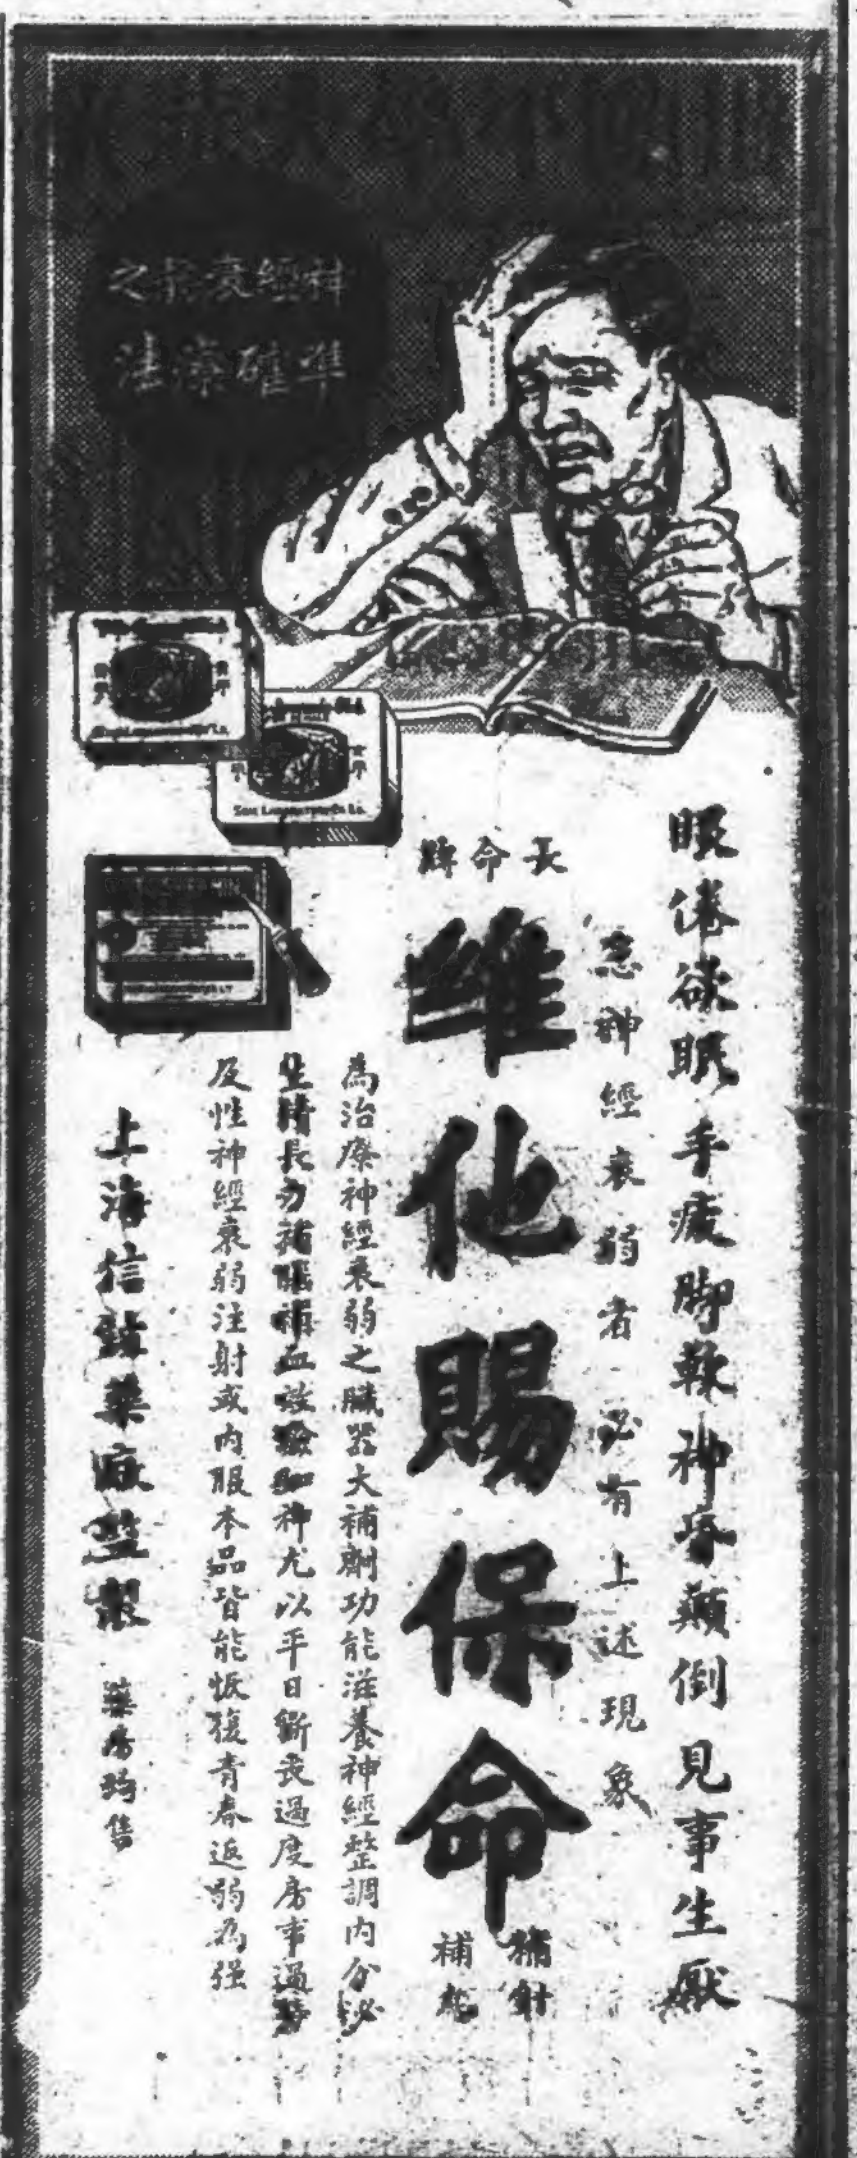 神經衰弱之
準確療法
眼倦欲眠手疲脚軟神昏顛倒見事生厭
患神經衰弱者必有上述現象
長命牌
維他賜保命
補針
補丸
為治療神經衰弱之臟器大補劑功能滋養神經整調內分泌
生精長力補腦補血效驗如神尤以平日斲喪過度房事過
及性神經衰弱注射或內服本品皆能恢復青春返弱為强
上海信誼藥廠監製
藥房均售